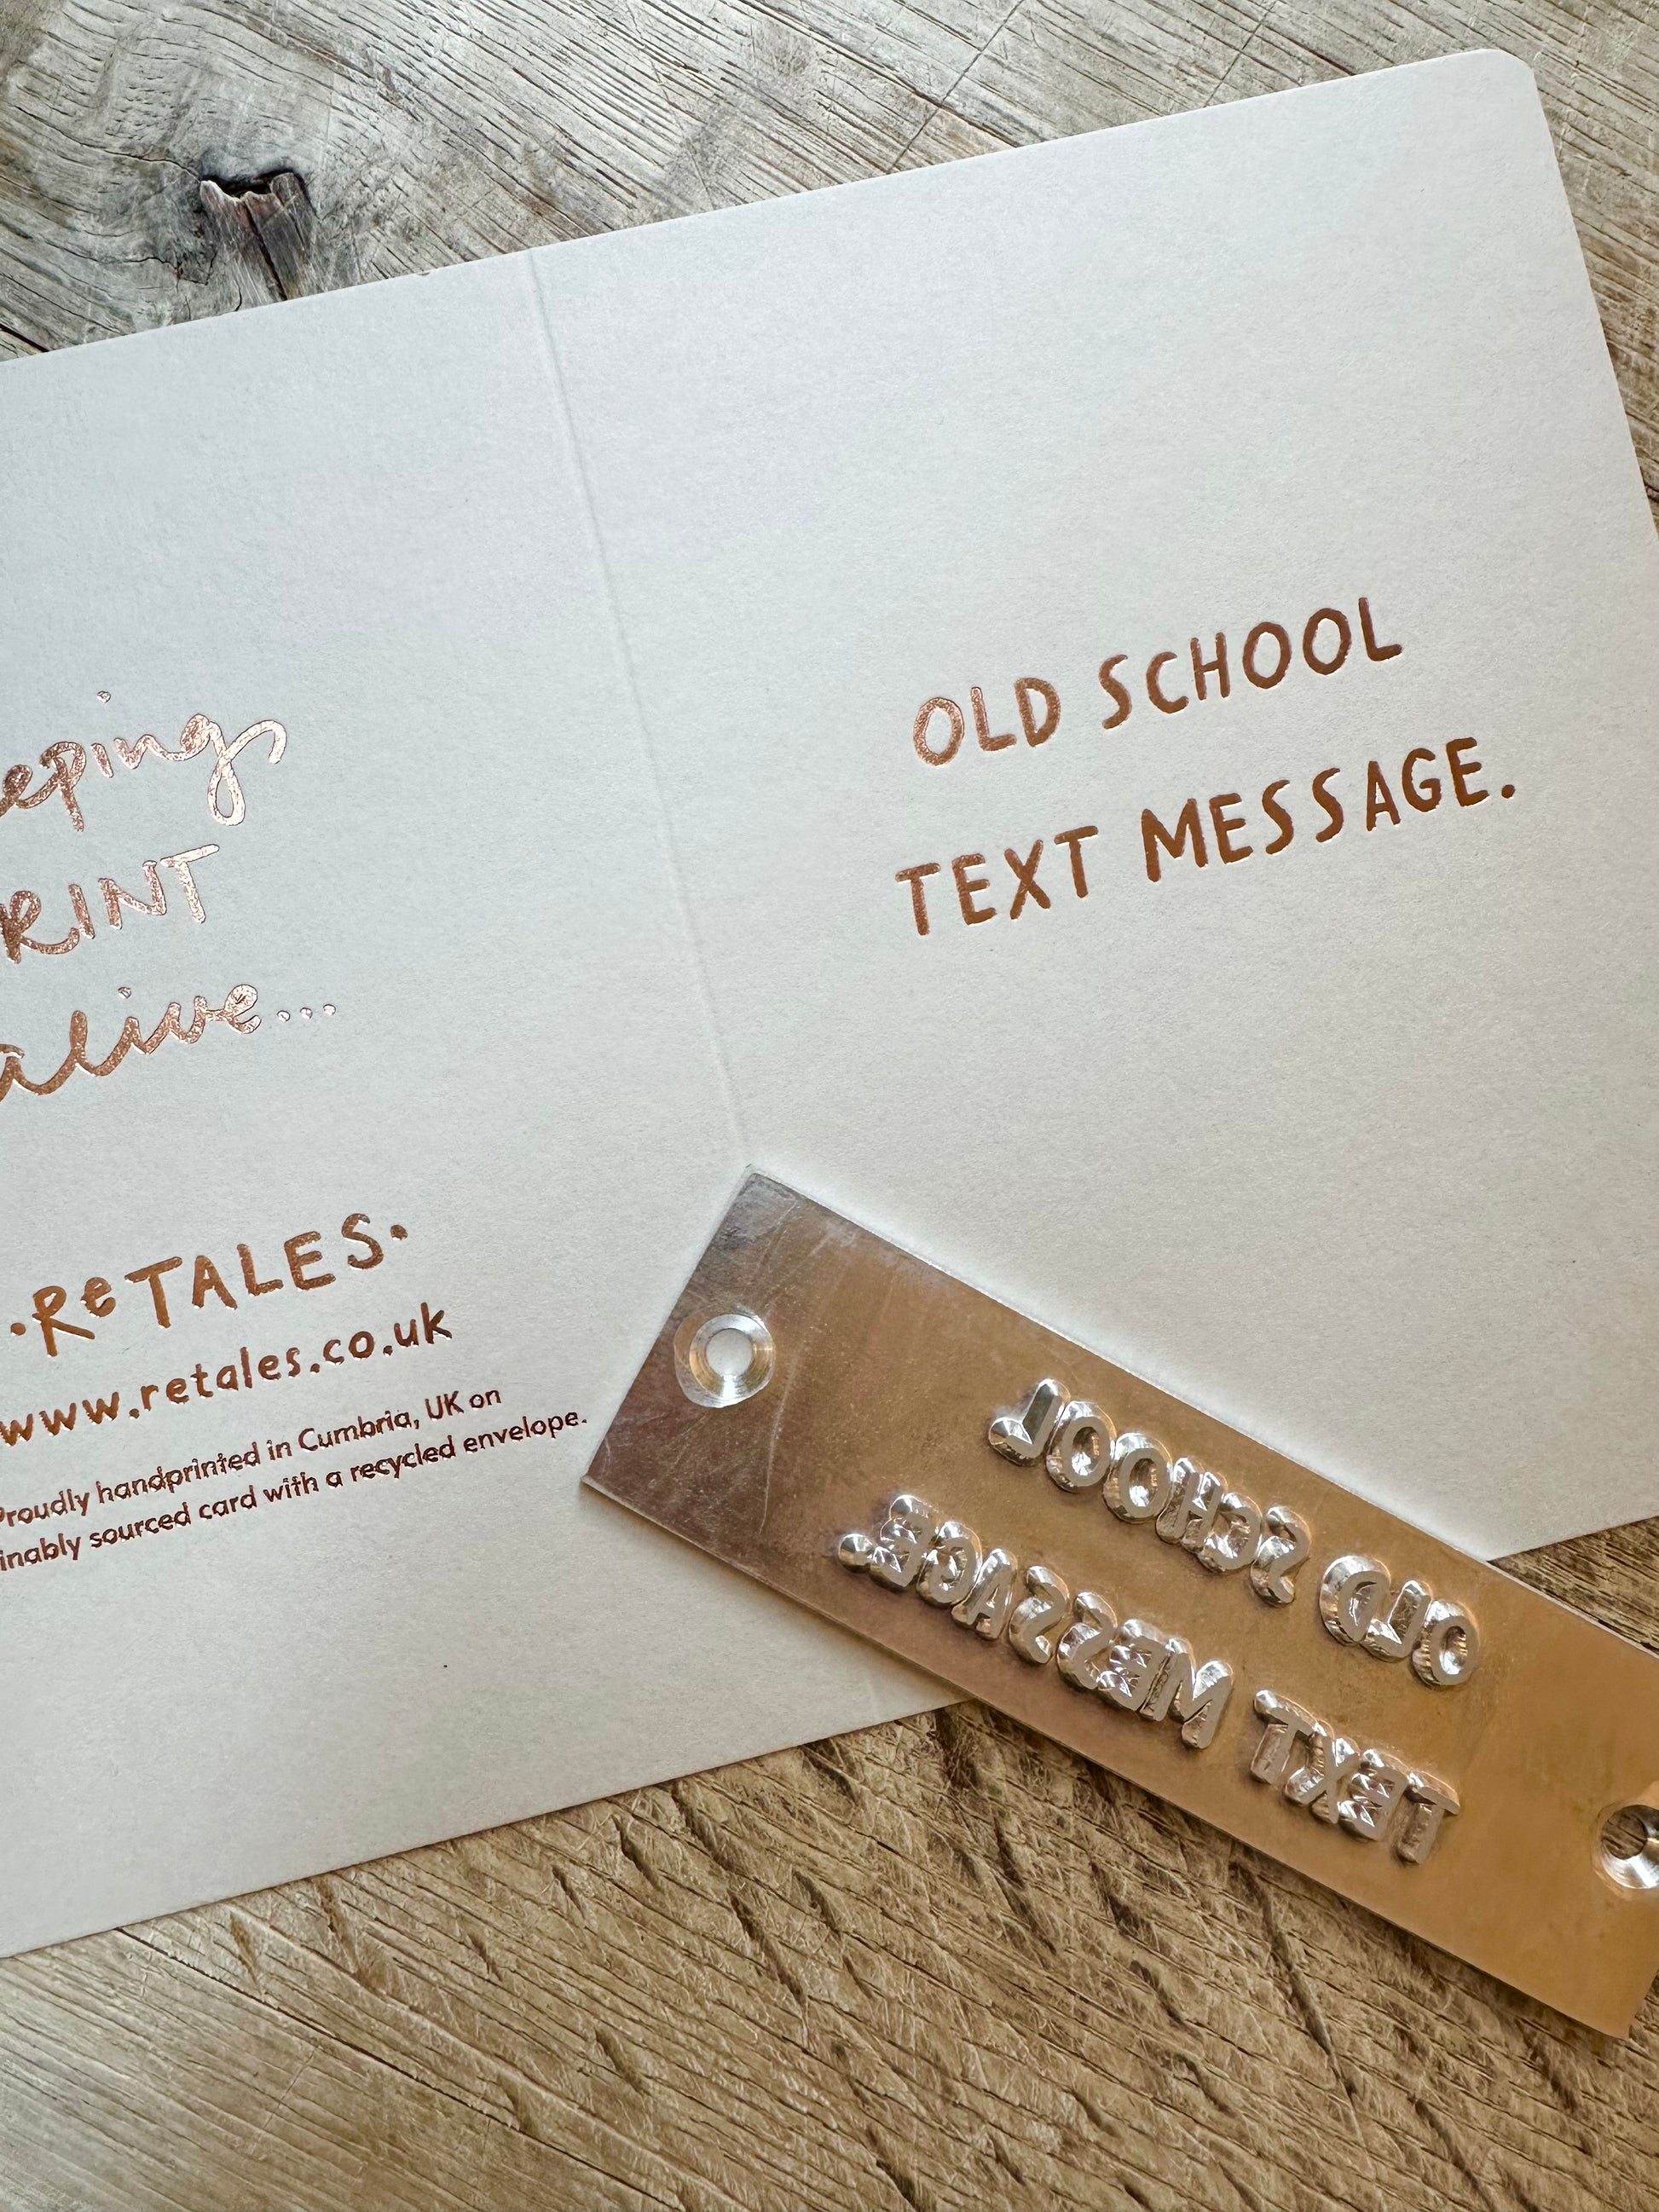 eeping
RINT
alive...
·ReTALES·
www.retales.co.uk
Proudly handprinted in Cumbria, UK on
inably sourced card with a recycled envelope.
OLD SCHOOL
TEXT MESSAGE.
OLD SCHOOL
TEXT MESSAGE.